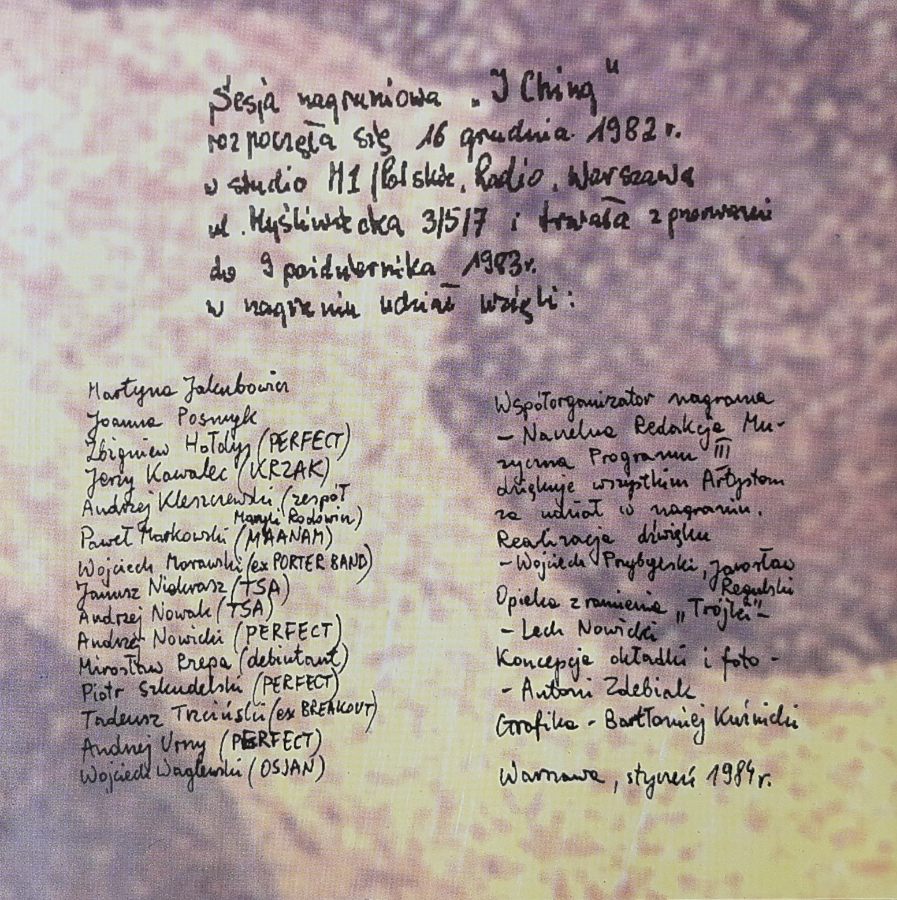 Sesja nagraniowa „I Ching"
rozpoczęła się 16 grudnia 1982 r.
w studio M1 /Polskie Radio, Warszawa
ul. Myśliwiecka 3/5/7 i trwała z przerwami
do 9 października 1983r.
w nagraniu udział wzięli:
Martyna Jakubowicz
Joanna Posmyk
Zbigniew Hołdys (PERFECT)
Jerzy Kawalec (KRZAK)
Andrzej Kleszczewski (zespół
Maryli Rodowicz)
Paweł Markowski (MAANAM)
Wojciech Morawski (ex PORTER BAND)
Janusz Niekrasz (TSA)
Andrzej Nowak (TSA)
Andrzej Nowicki (PERFECT)
Mirosław Rzepa (debiutant)
Piotr Szkudelski (PERFECT)
Tadeusz Trzciński (ex BREAKOUT)
Andrzej Urny (PERFECT)
Wojciech Waglewski (OSJAN)
Współorganizator nagrania
- Naczelna Redakcja Mu-
zyczna Programu III
dziękuje wszystkim Artystom
za udział w nagraniu.
Realizacja dźwięku
- Wojciech Przybylski, Jarosław
Regulski
Opieka z ramienia „Trójki" -
- Lech Nowicki
Koncepcja okładki i foto -
- Antoni Zdebiak
Grafika - Bartłomiej Kuźnicki
Warszawa, styczeń 1984r.